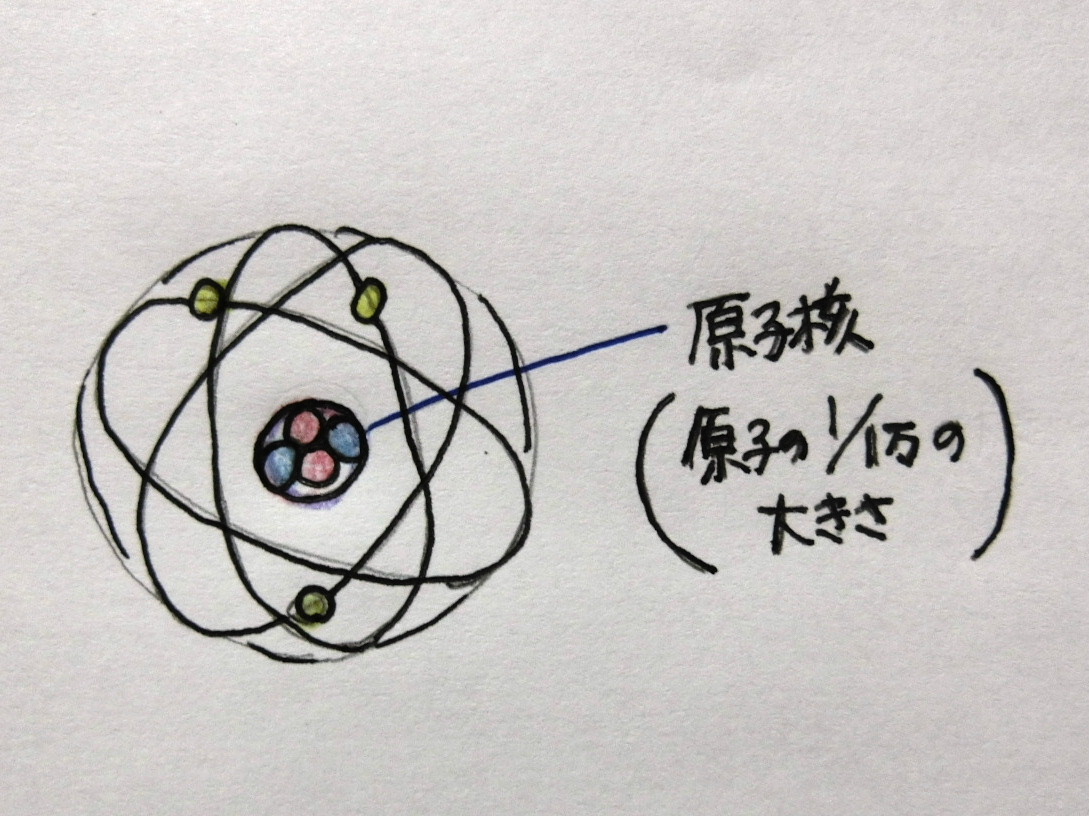 原子核
(原子の1/1万の
大きさ)